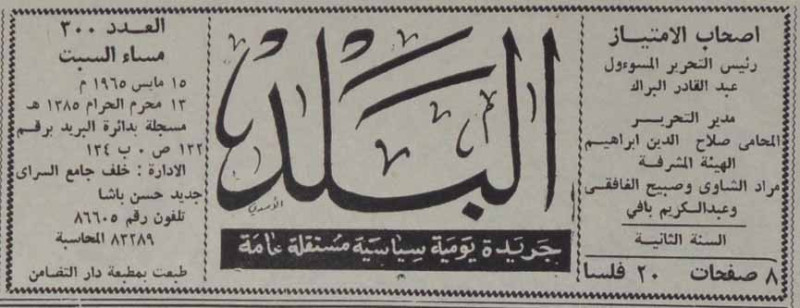 اصحاب الامتياز
رئيس التحرير المسوءول
عبد القادر البراك
مدير التحرير
المحامى صلاح الدين ابراهيم
الهيئة المشرفة
مراد الشاوى وصبيح الغافقى
وعبدالكريم بافي
السنة الثانية
٨ صفحات ٢٠ فلسا
البلد
جريدة يومية سياسية مستقلة عامة
العدد ٣٠٠
مساء السبت
١٥ مايس ١٩٦٥ م
١٣ محرم الحرام ١٣٨٥ هـ
مسجلة بدائرة البريد برقم
١٢٢ ص ٠ ب ١٣٤
الادارة : خلف جامع السراى
جديد حسن باشا
تلفون رقم ٨٦٦٠٥
٨٣٢٨٩ المحاسبة
طبعت بمطبعة دار التضامن